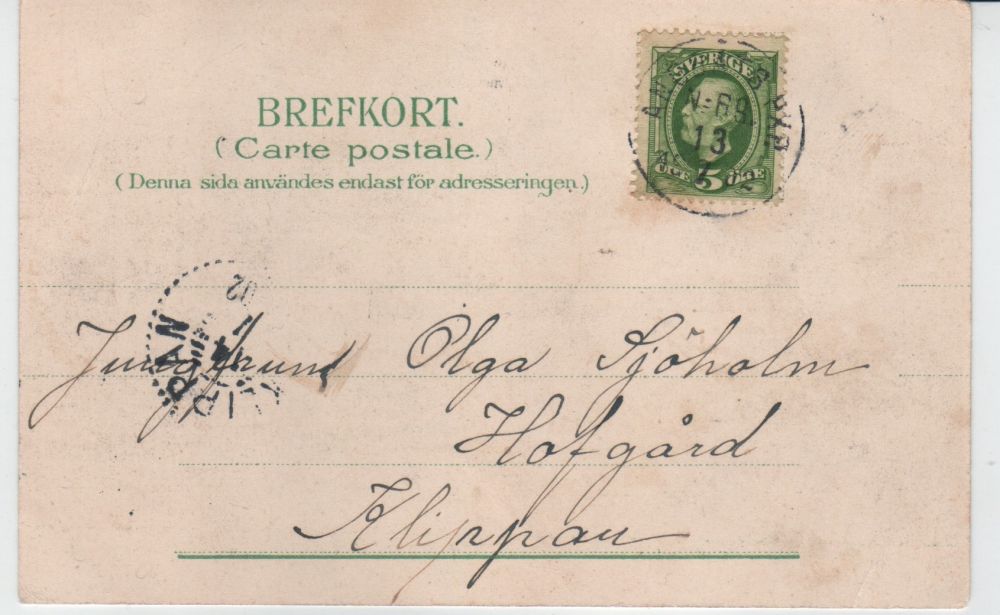 BREFKORT.
(Carte postale.)
(Denna sida användes endast för adresseringen.)
SVERIGE
5
ÖRE ÖRE
13
02
Jungfrun Olga Sjöholm
Hofgård
Klippan